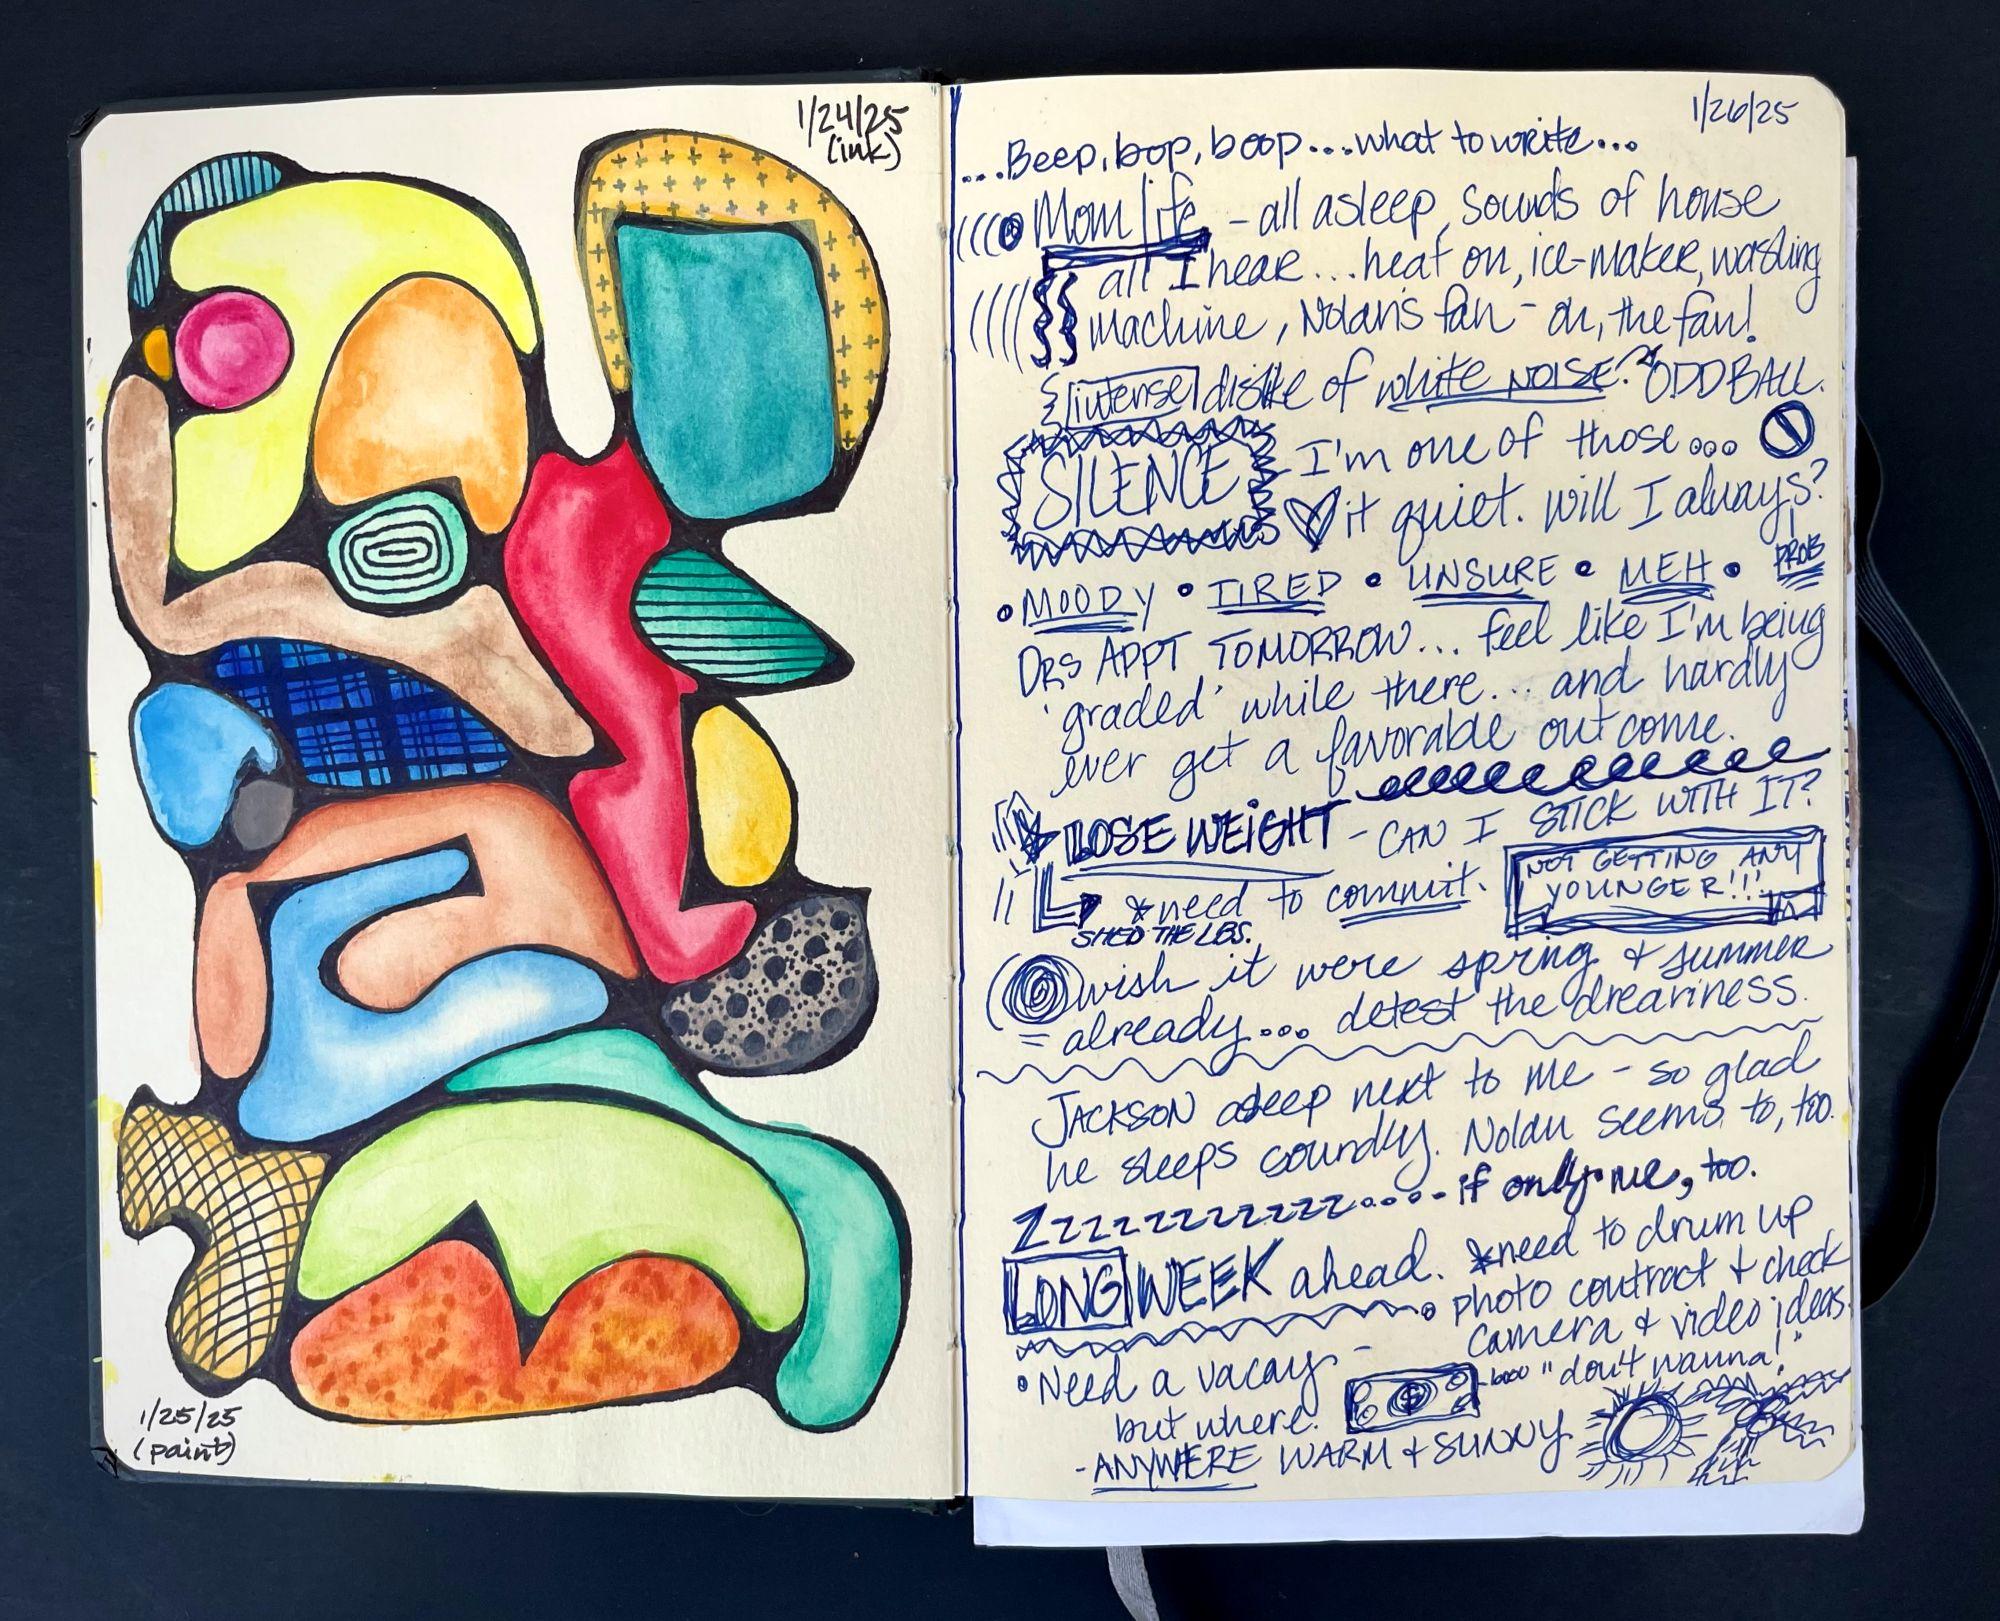 1/24/25
(ink)
1/25/25
(paint)
1/26/25
...Beep, bop, boop...what to write...
Mom life - all asleep, sounds of house
all I hear...heat on, ice-maker, washing
machine, Nolan's fan - oh, the fan!
intense dislike of white NOISE? ODDBALL.
SILENCE I'm one of those...
it quiet. Will I always?
PROB
• MOODY • TIRED • UNSURE • MEH •
DRS APPT TOMORROW... feel like I'm being
'graded' while there... and hardly
ever get a favorable outcome.
LOSE WEIGHT - CAN I STICK WITH IT?
*need to commit.
SHED THE LBS.
NOT GETTING ANY
YOUNGER!!!
wish it were spring + summer
already... detest the dreariness.
JACKSON asleep next to me - so glad
he sleeps soundly. Nolan seems to, too.
Zzzzzzzzzzzz.... if only me, too.
LONG WEEK ahead. *need to drum up
photo contract + check
camera + video ideas.
"don't wanna!"
• Need a vacay -
but where.
$
- ANYWHERE WARM + SUNNY